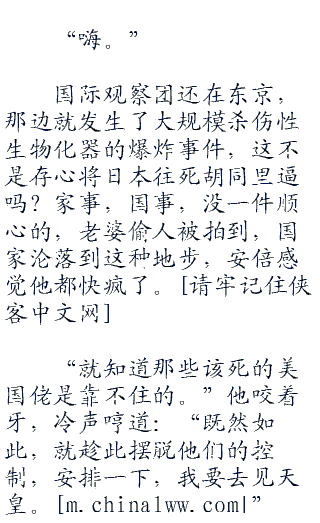 “嗨。”
国际观察团还在东京，
那边就发生了大规模杀伤性
生物化器的爆炸事件，这不
是存心将日本往死胡同里逼
吗？家事，国事，没一件顺
心的，老婆偷人被拍到，国
家沦落到这种地步，安倍感
觉他都快疯了。[请牢记住侠
客中文网]
“就知道那些该死的美
国佬是靠不住的。”他咬着
牙，冷声哼道：“既然如
此，就趁此摆脱他们的控
制，安排一下，我要去见天
皇。[m.china1ww.com|”